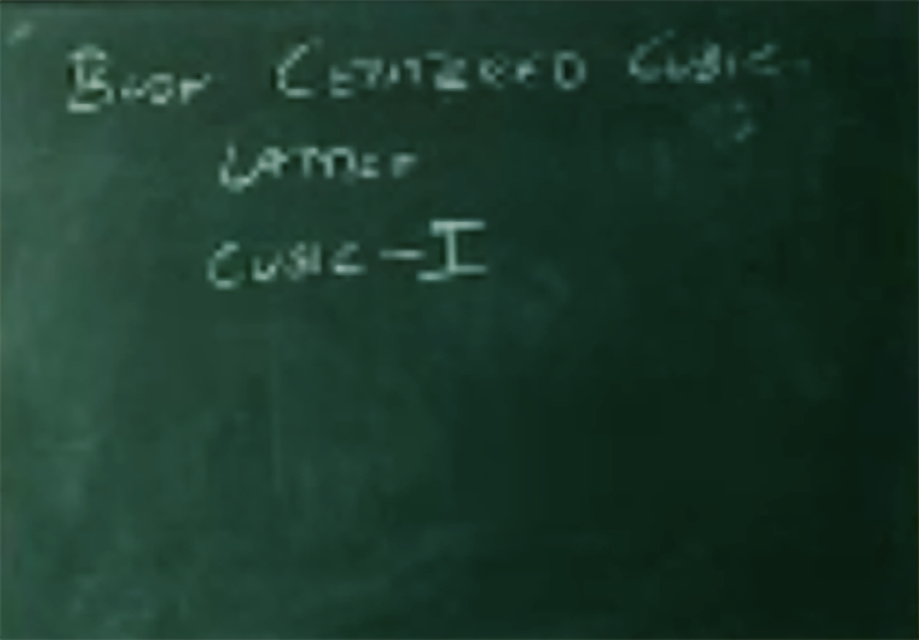 BODY CENTERED CUBIC
LATTICE
CUBIC-I